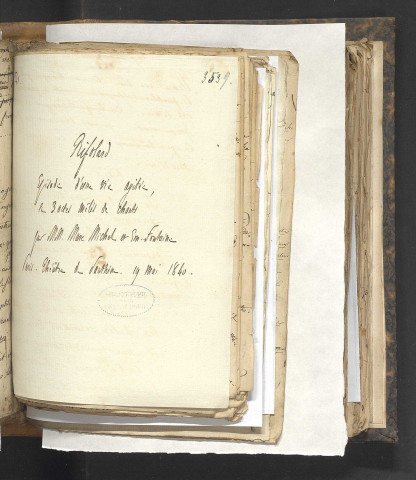 3539.
Riffolard
Episode d'une vie agitée,
en 3 actes mêlés de chants
par MM. Marc Michel et Em. Fontaine
Théâtre du Panthéon. 19 mai 1840.